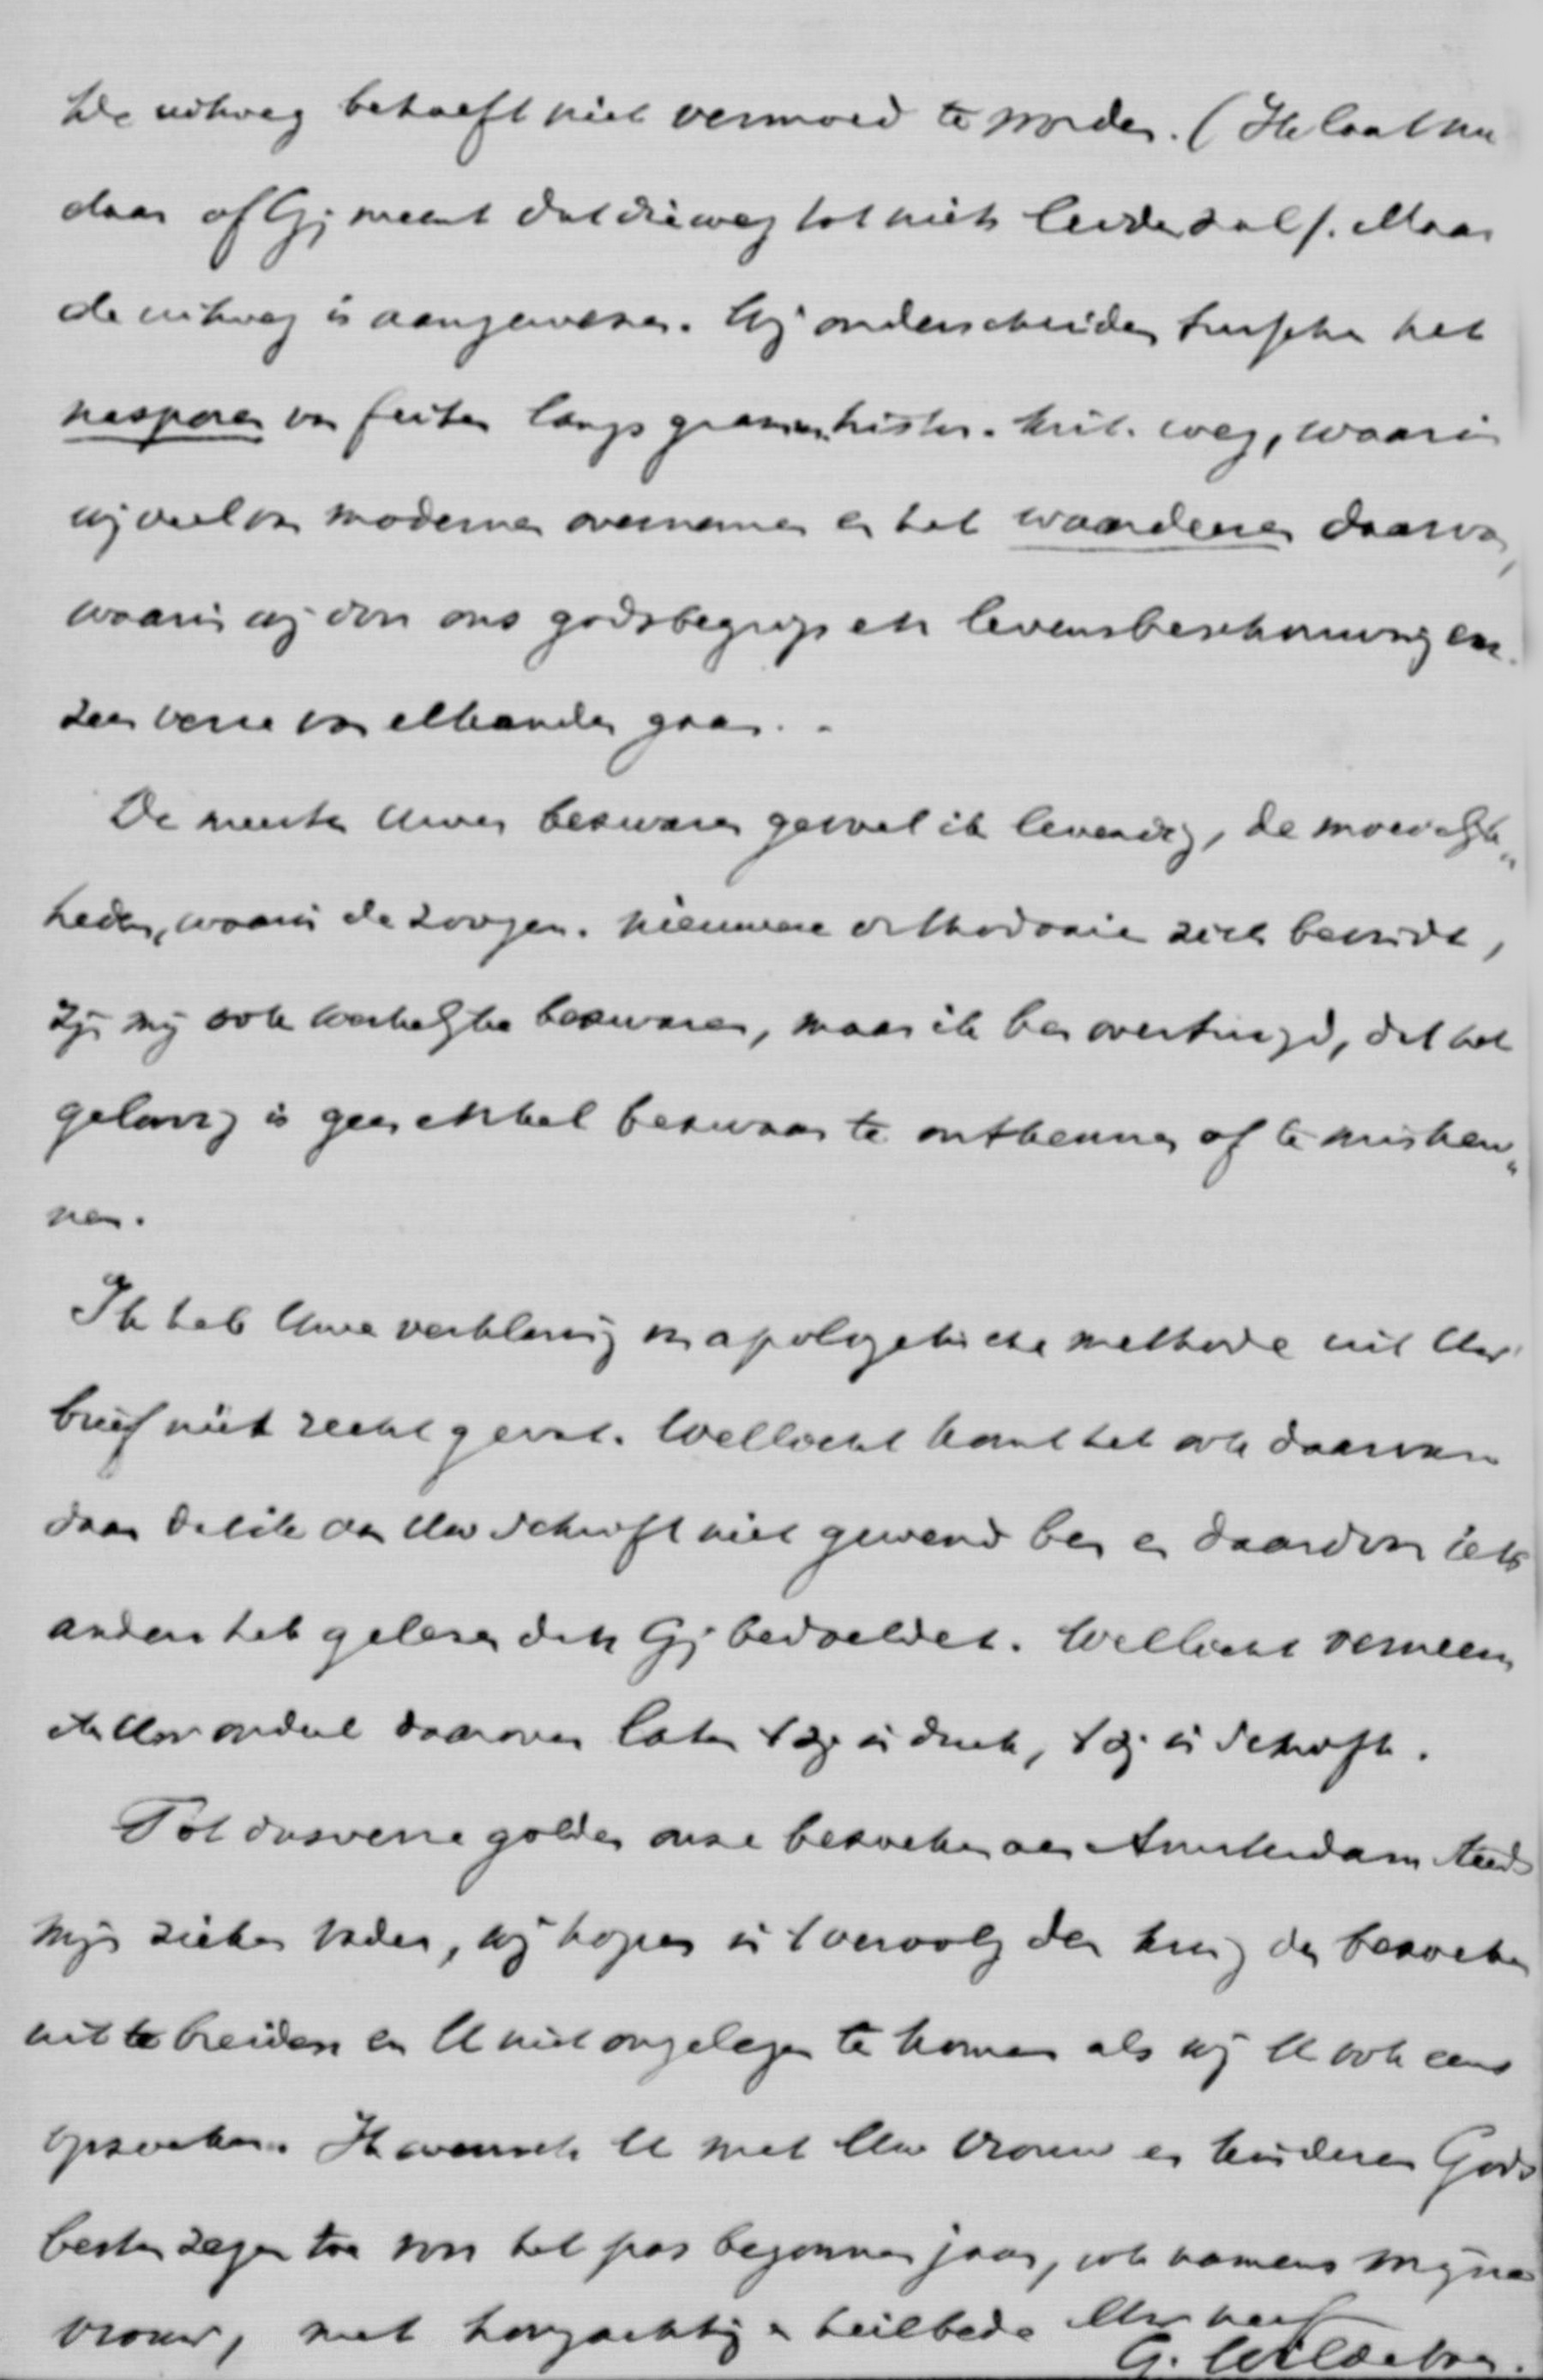 De uitweg behoeft niet vermoed te worden. (Ik laat nu
daar of Gij meent dat die weg tot niets leiden zal). Maar
de uitweg is aangewezen. Wij onderscheiden tusschen het
nasporen van feiten langs gramm. histor. krit. weg, waarin
wij veel van modernen overnemen en het waardeeren daarvan,
waarin wij door ons godsbegrip en levensbeschouwing enz.
zeer verre van elkander gaan. -
De meeste Uwer bezwaren gevoel ik levendig, de moeielijk„
heden, waarin de zoogen. nieuwere orthodoxie zich bevindt,
zijn mij ook werkelijke bezwaren, maar ik ben overtuigd, dat het
geloovig is geen enkel bezwaar te ontkennen of te misken„
nen.
Ik heb Uwe verklaring van apologetische methode uit Uw
brief niet recht gevat. Wellicht komt het ook daarvan
daan dat ik aan Uw schrift niet gewend ben en daardoor iets
anders heb gelezen dan Gij bedoeldet. Wellicht verneem
ik Uw oordeel daarover later 't zij in druk, 't zij in schrift.
Tot dusverre golden onze bezoeken aan Amsterdam steeds
mijn zieken vader, wij hopen in 't vervolg den kring der bezoeken
uit te breiden en U niet ongelegen te komen als wij U ook eens
opzoeken. Ik wensch U met Uw vrouw en kinderen Gods
besten zegen toe voor het pas begonnen jaar, ook namens mijne
vrouw, met hoogachting en heilbede Uw
G. Wildeboer.